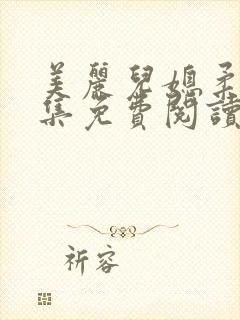 美麗兒媳柔
集免費閱讀
祈容